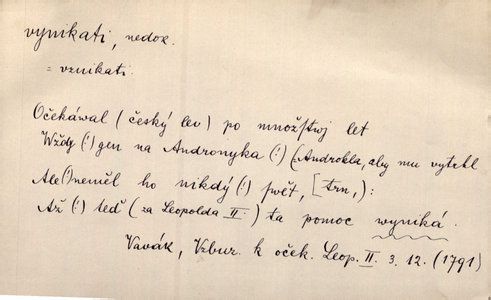 vynikati, nedok.
= vznikati.
Očekáwal (český lev) po množstwj let
Wždy (!) gen na Andronyka (!) (Androkla, aby mu vytrhl
Ale (!) neměl ho nikdý (!) pwět, [trn,):
Až (!) teď (za Leopolda II.) ta pomoc wyniká.
Vavák, Vzbur. k oček. Leop. II. 3. 12. (1791)